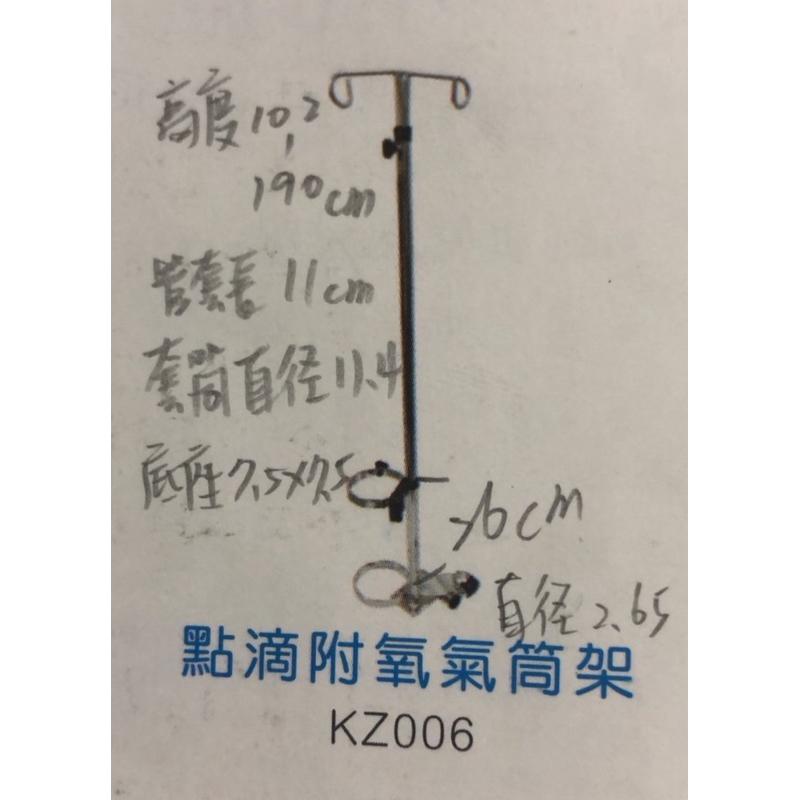 高度102
190cm
管套長 11cm
套筒直径11.4
底座7.5x7.5
26cm
直径2.65
點滴附氧氣筒架
KZ006